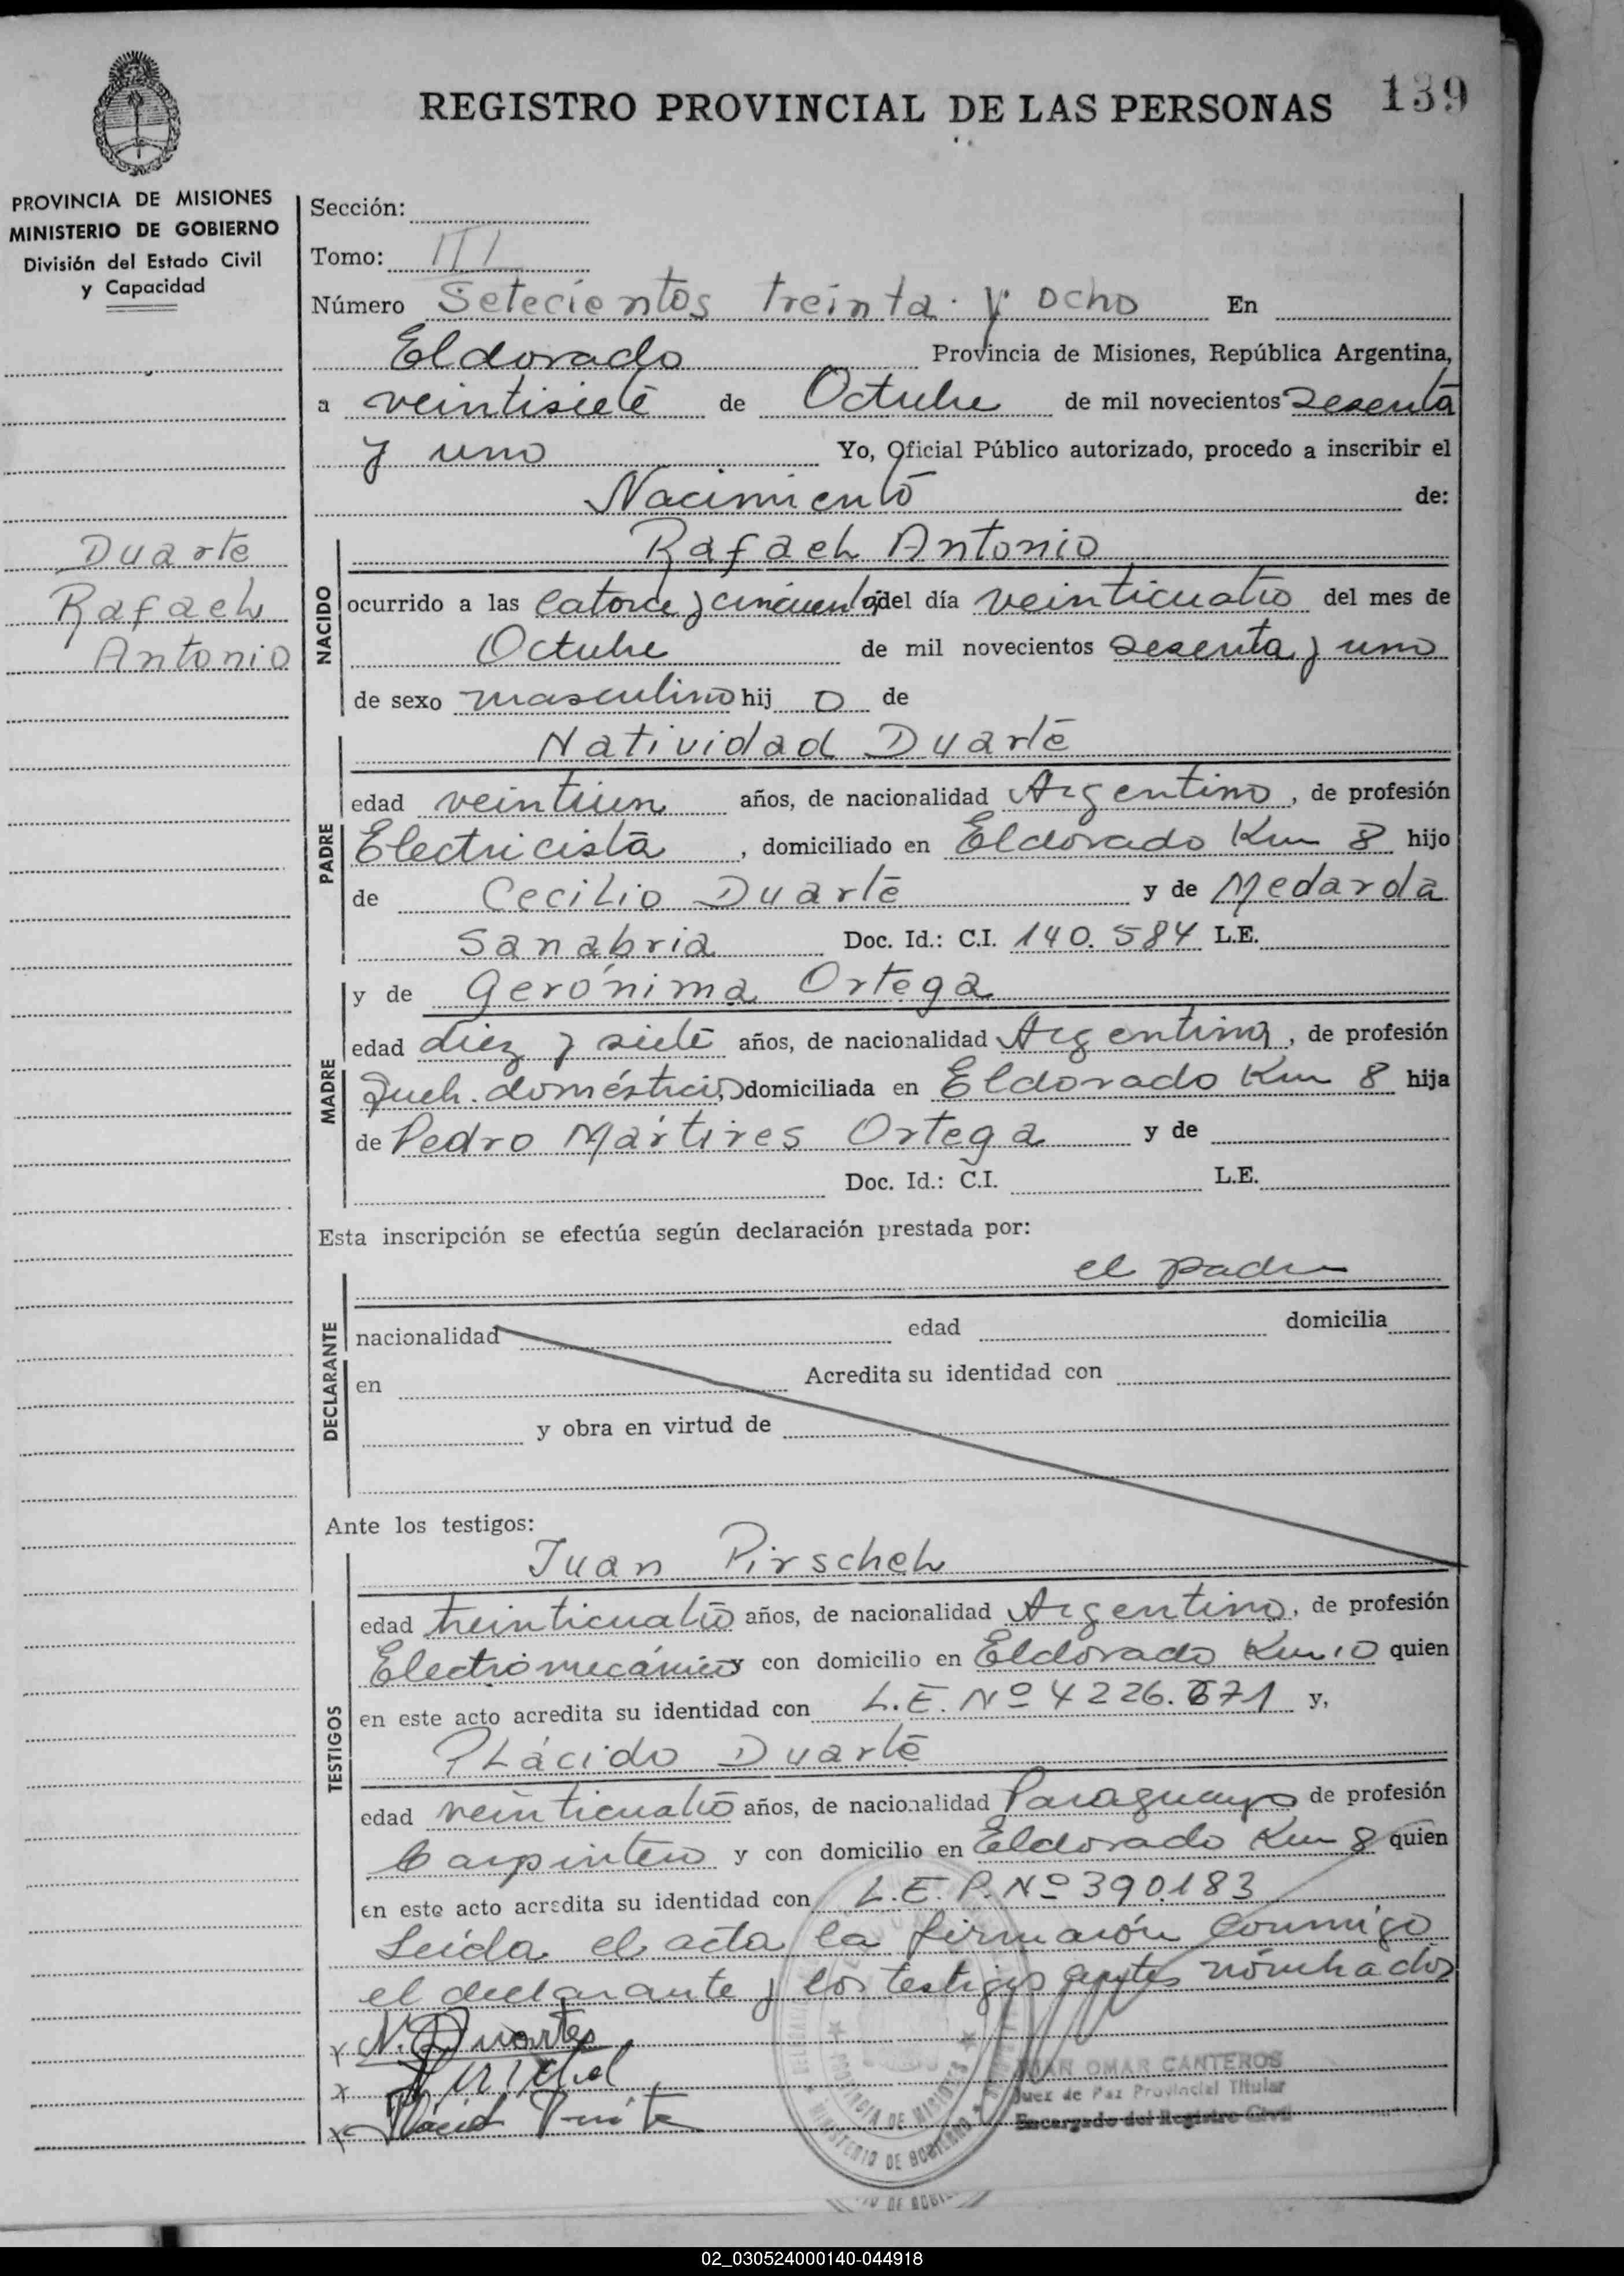 REGISTRO PROVINCIAL DE LAS PERSONAS 139
PROVINCIA DE MISIONES
MINISTERIO DE GOBIERNO
División del Estado Civil
y Capacidad
Duarte
Rafael
Antonio
Sección:
Tomo: III
Número Setecientos treinta y ocho En
Eldorado Provincia de Misiones, República Argentina,
a veintisiete de Octubre de mil novecientos sesenta
y uno Yo, Oficial Público autorizado, procedo a inscribir el
Nacimiento de:
NACIDO
Rafael Antonio
ocurrido a las catorce y cincuenta del día veinticuatro del mes de
Octubre de mil novecientos sesenta y uno
de sexo masculino hij o de
PADRE
Natividad Duarte
edad veintiún años, de nacionalidad Argentino, de profesión
Electricista, domiciliado en Eldorado Km 8 hijo
de Cecilio Duarte y de Medarda
Sanabria Doc. Id.: C.I. 140.584 L.E.
MADRE
y de Gerónima Ortega
edad diez y siete años, de nacionalidad Argentina, de profesión
Queh. domésticos, domiciliada en Eldorado Km 8 hija
de Pedro Mártires Ortega y de
Doc. Id.: C.I. L.E.
Esta inscripción se efectúa según declaración prestada por:
DECLARANTE
el padre
nacionalidad edad domicilia
en Acredita su identidad con
y obra en virtud de
Ante los testigos:
TESTIGOS
Juan Pirschel
edad treinticuatro años, de nacionalidad Argentino, de profesión
Electromecánico y con domicilio en Eldorado Km 10 quien
en este acto acredita su identidad con L.E. Nº 4226.671 y,
Plácido Duarte
edad veinticuatro años, de nacionalidad Paraguayo de profesión
Carpintero y con domicilio en Eldorado Km 8 quien
en este acto acredita su identidad con L.E.P. Nº 390.183
Leída el acta la firmarón conmigo
el declarante y los testigos antes nómbrados
x N. Duarte
x Pirschel
x Plácido Duarte
PROVINCIA DE MISIONES
MINISTERIO DE GOBIERNO
JUAN OMAR CANTEROS
Juez de Paz Provincial Titular
Encargado del Registro Civil
02_030524000140-044918